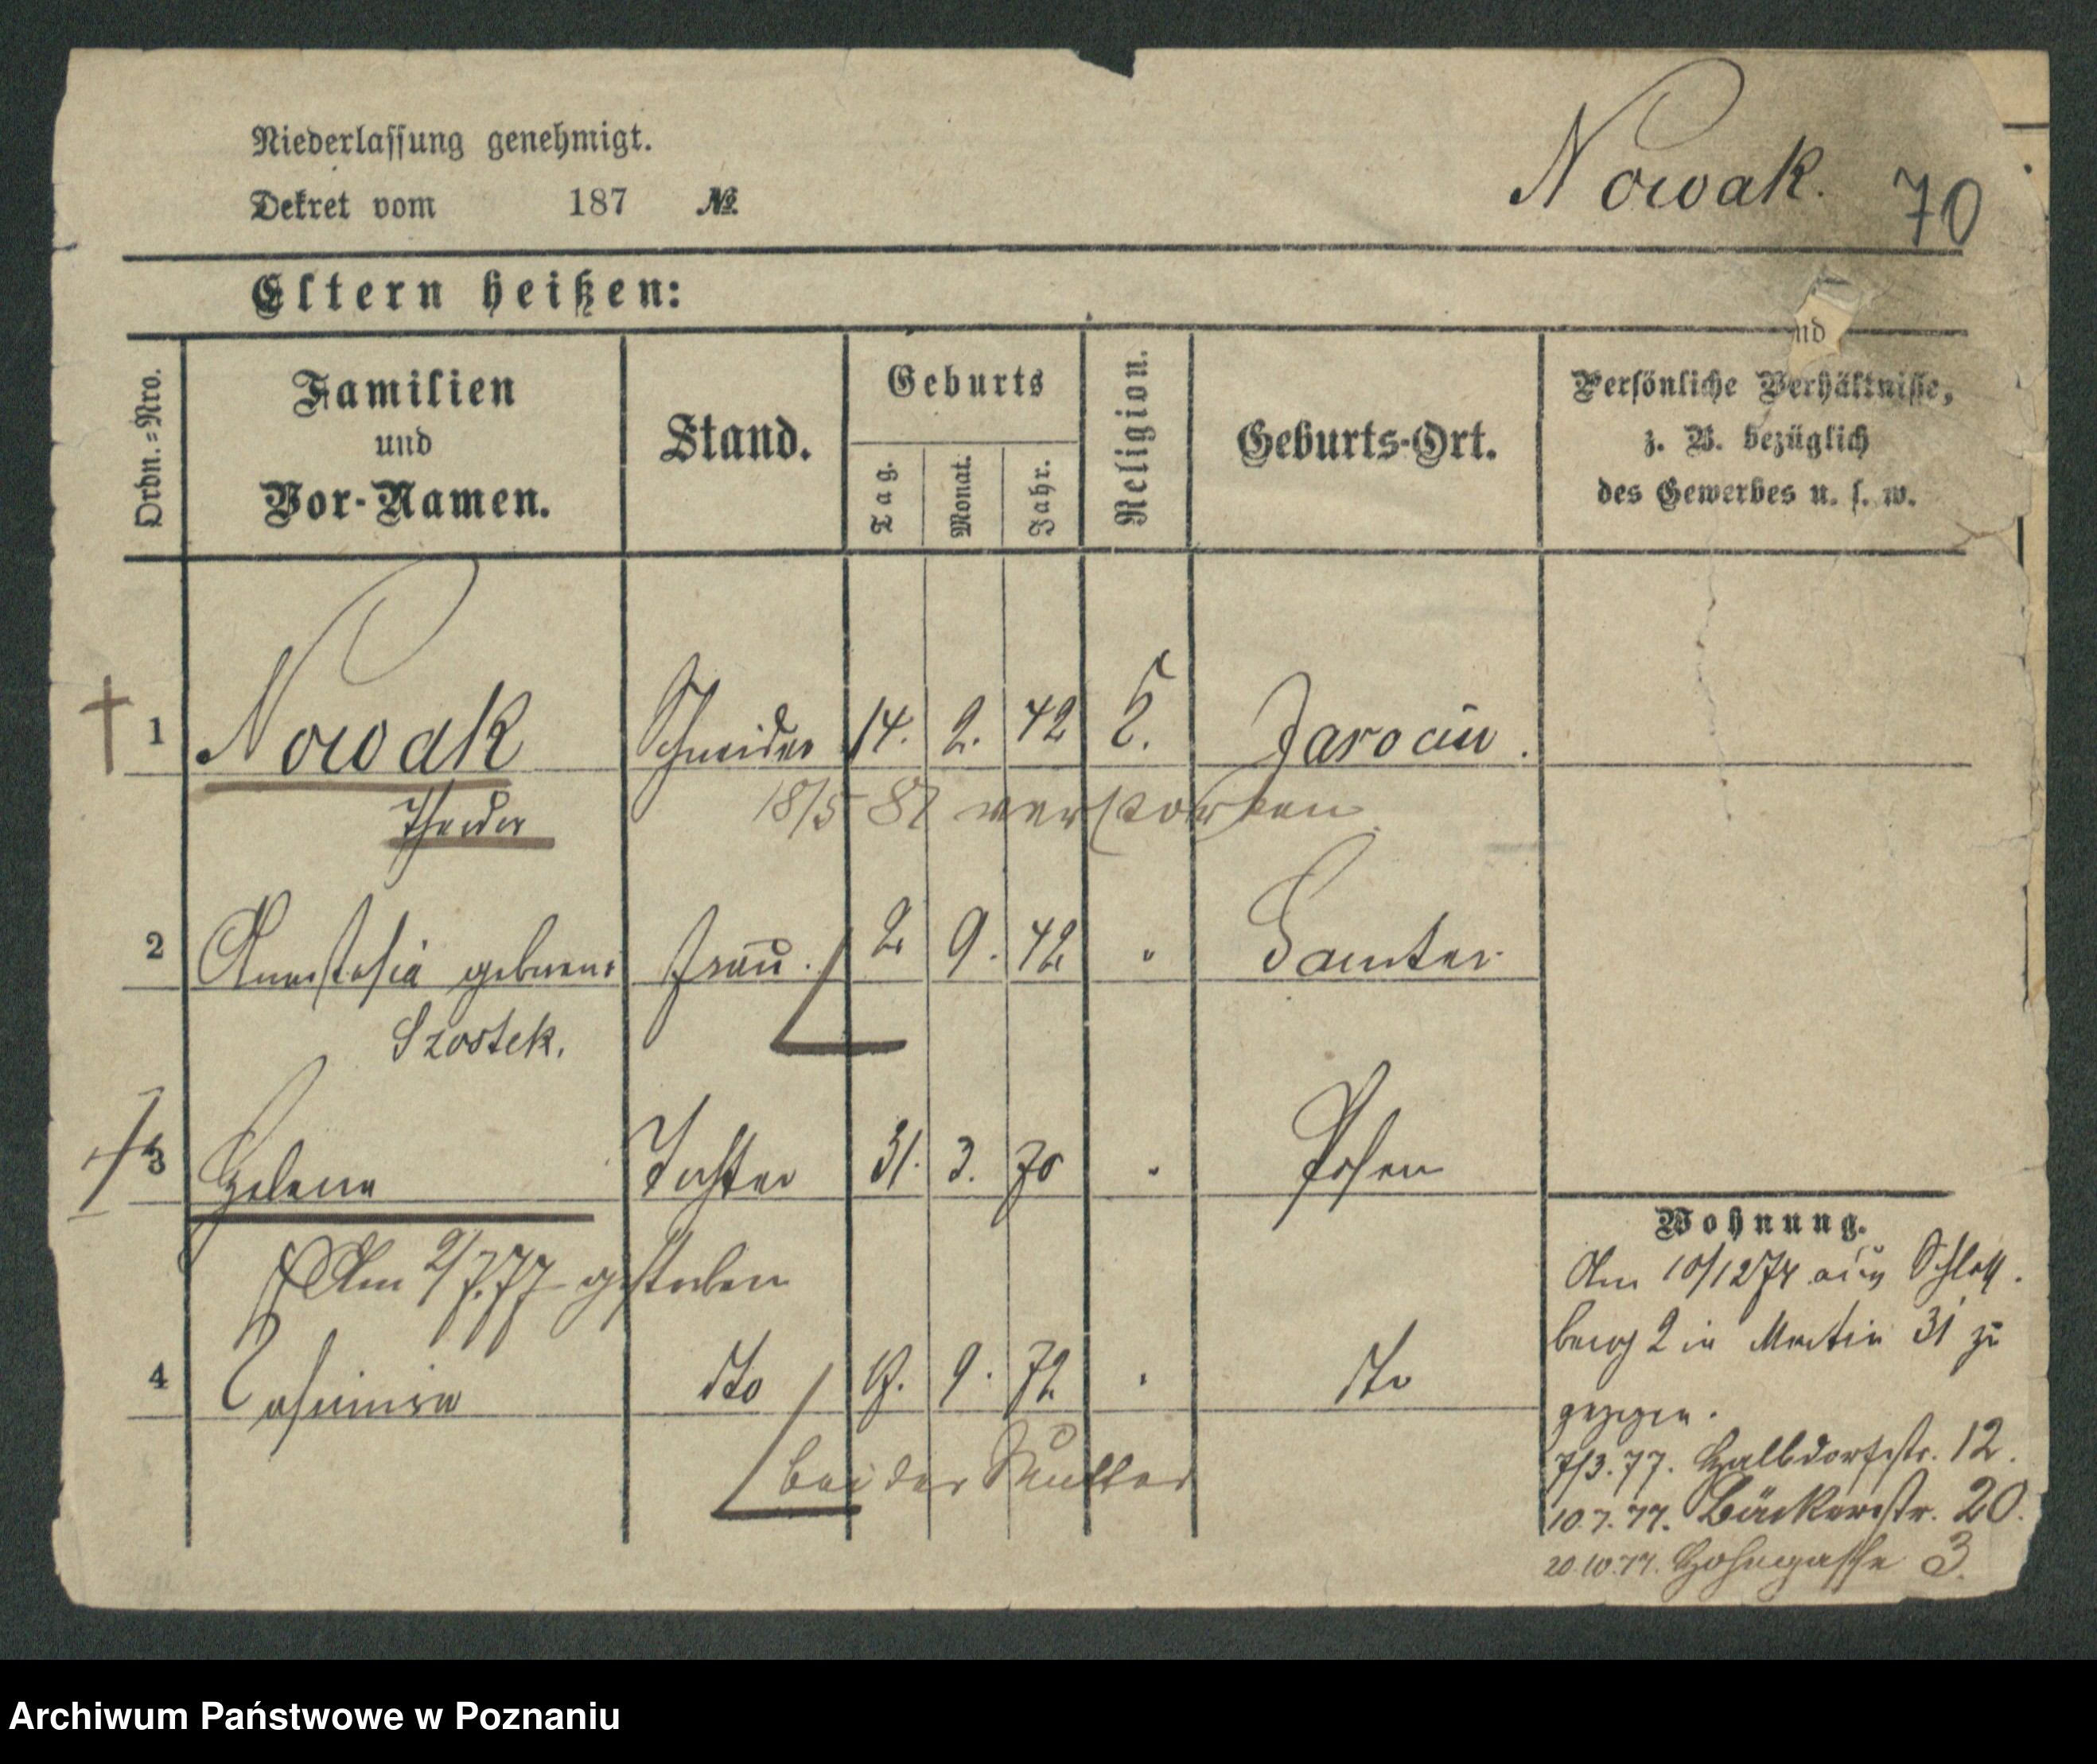 Niederlassung genehmigt.
Dekret vom 187 №
Nowak. 70
Eltern heißen:
nd
Ordn.=Nro.
Familien
und
Vor-Namen.
Stand.
Geburts
Tag.
Monat.
Jahr.
Religion.
Geburts-Ort.
Persönliche Verhältnisse,
z. B. bezüglich
des Gewerbes u. s. w.
† 1 Nowak Schneider 14. 2. 42 Jarocin.
18/5 82 verstorben
2 Anastasia geborene Frau. 2. 9. 42 " Samter
Szostek.
3 Helena Tochter 31. 3. 70 " Posen
Am 2/7.77 gestorben
4 dto 9. 72 " dto
bei der Mutter
Wohnung.
Am 10/12 74 aus Schloß-
berg 2 in Martin 31 zu
gezogen.
7/3.77. Halbdorfstr. 12.
10.7.77. Bäckerstr. 20.
20.10.77. 3.
Archiwum Państwowe w Poznaniu